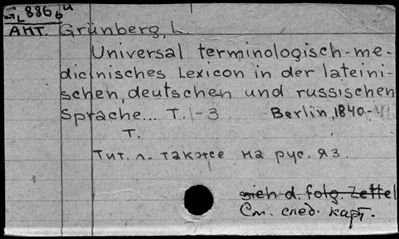 886
АНТ. Grünberg, L.
Universal terminologisch-me-
dicinisches Lexicon in der lateini-
schen, deutschen und russischen
Sprache... T. 1-3 Berlin, 1840-41
T.
Тит. л. также на рус. яз.
sieh d. folg. Zettel
См. след. карт.